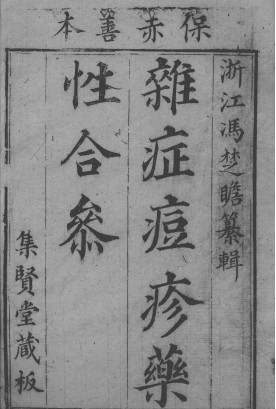 保赤善本
浙江馮楚瞻纂輯
雜症痘疹藥
性合叅
集賢堂藏板